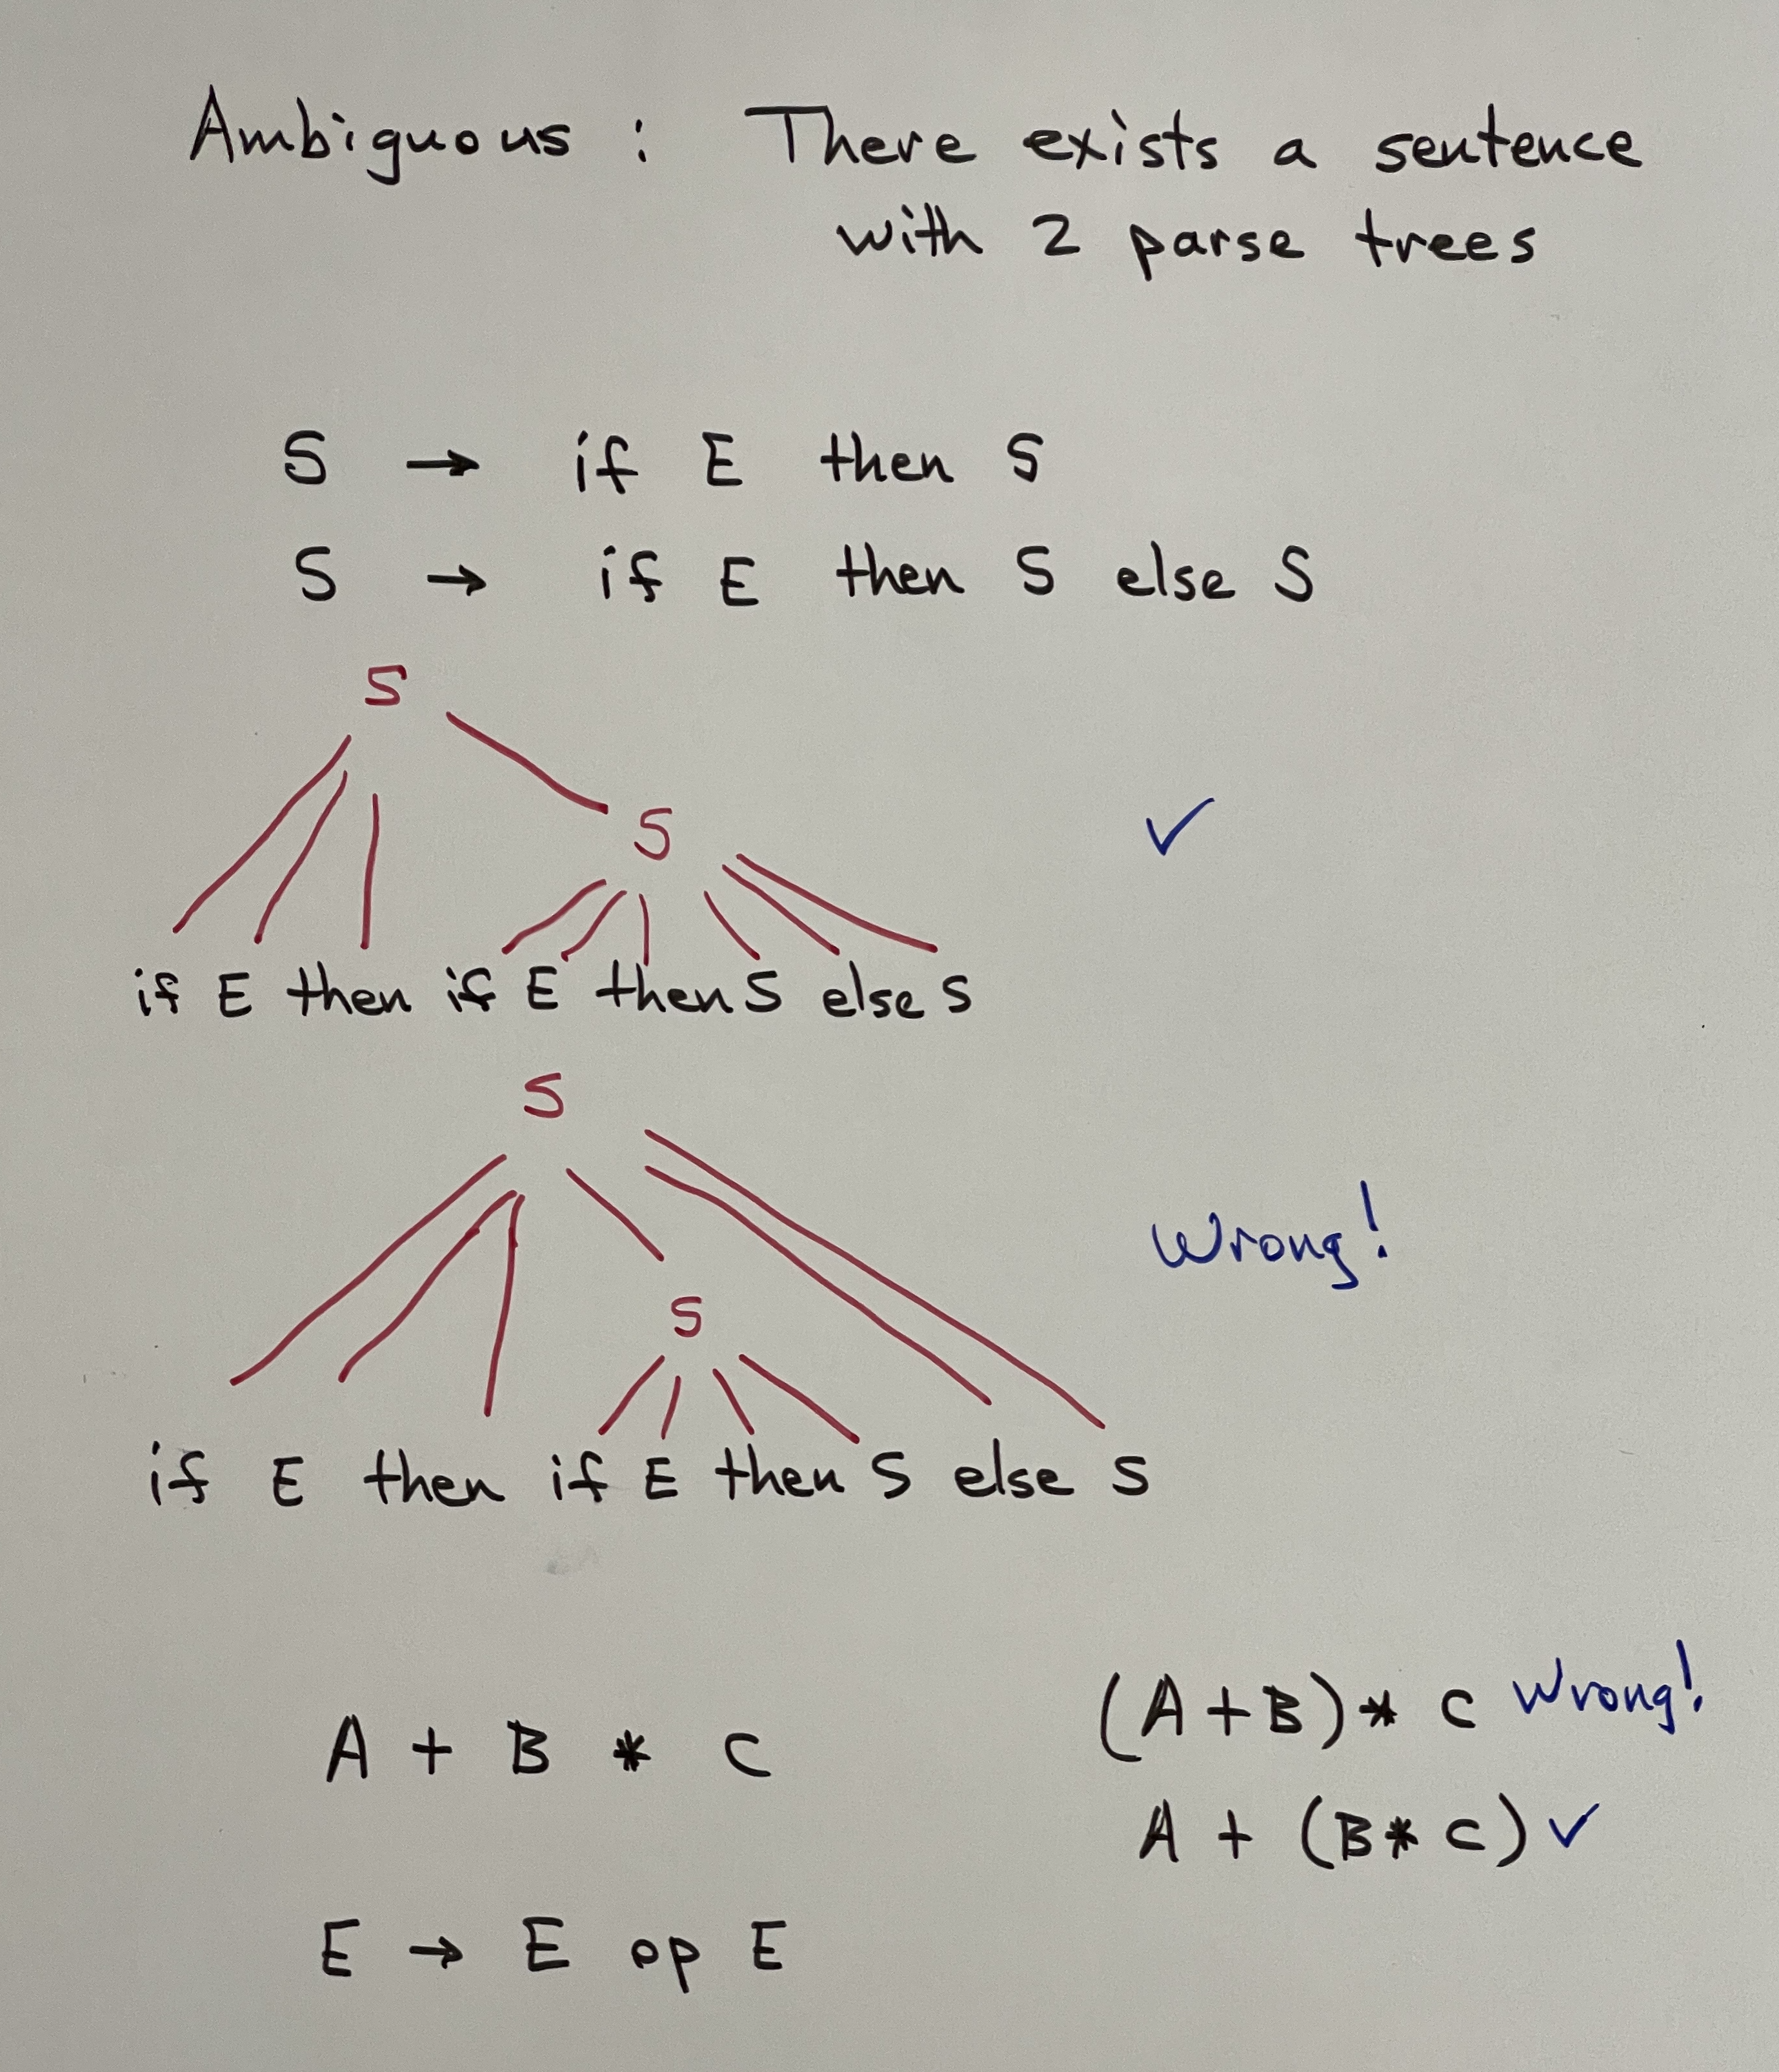 Ambiguous : There exists a sentence
with 2 parse trees
S → if E then S
S → if E then S else S
S
S
✓
if E then if E then S else S
S
Wrong!
S
if E then if E then S else S
(A+B)* C Wrong!
A + B * C
A + (B* C) ✓
E → E op E